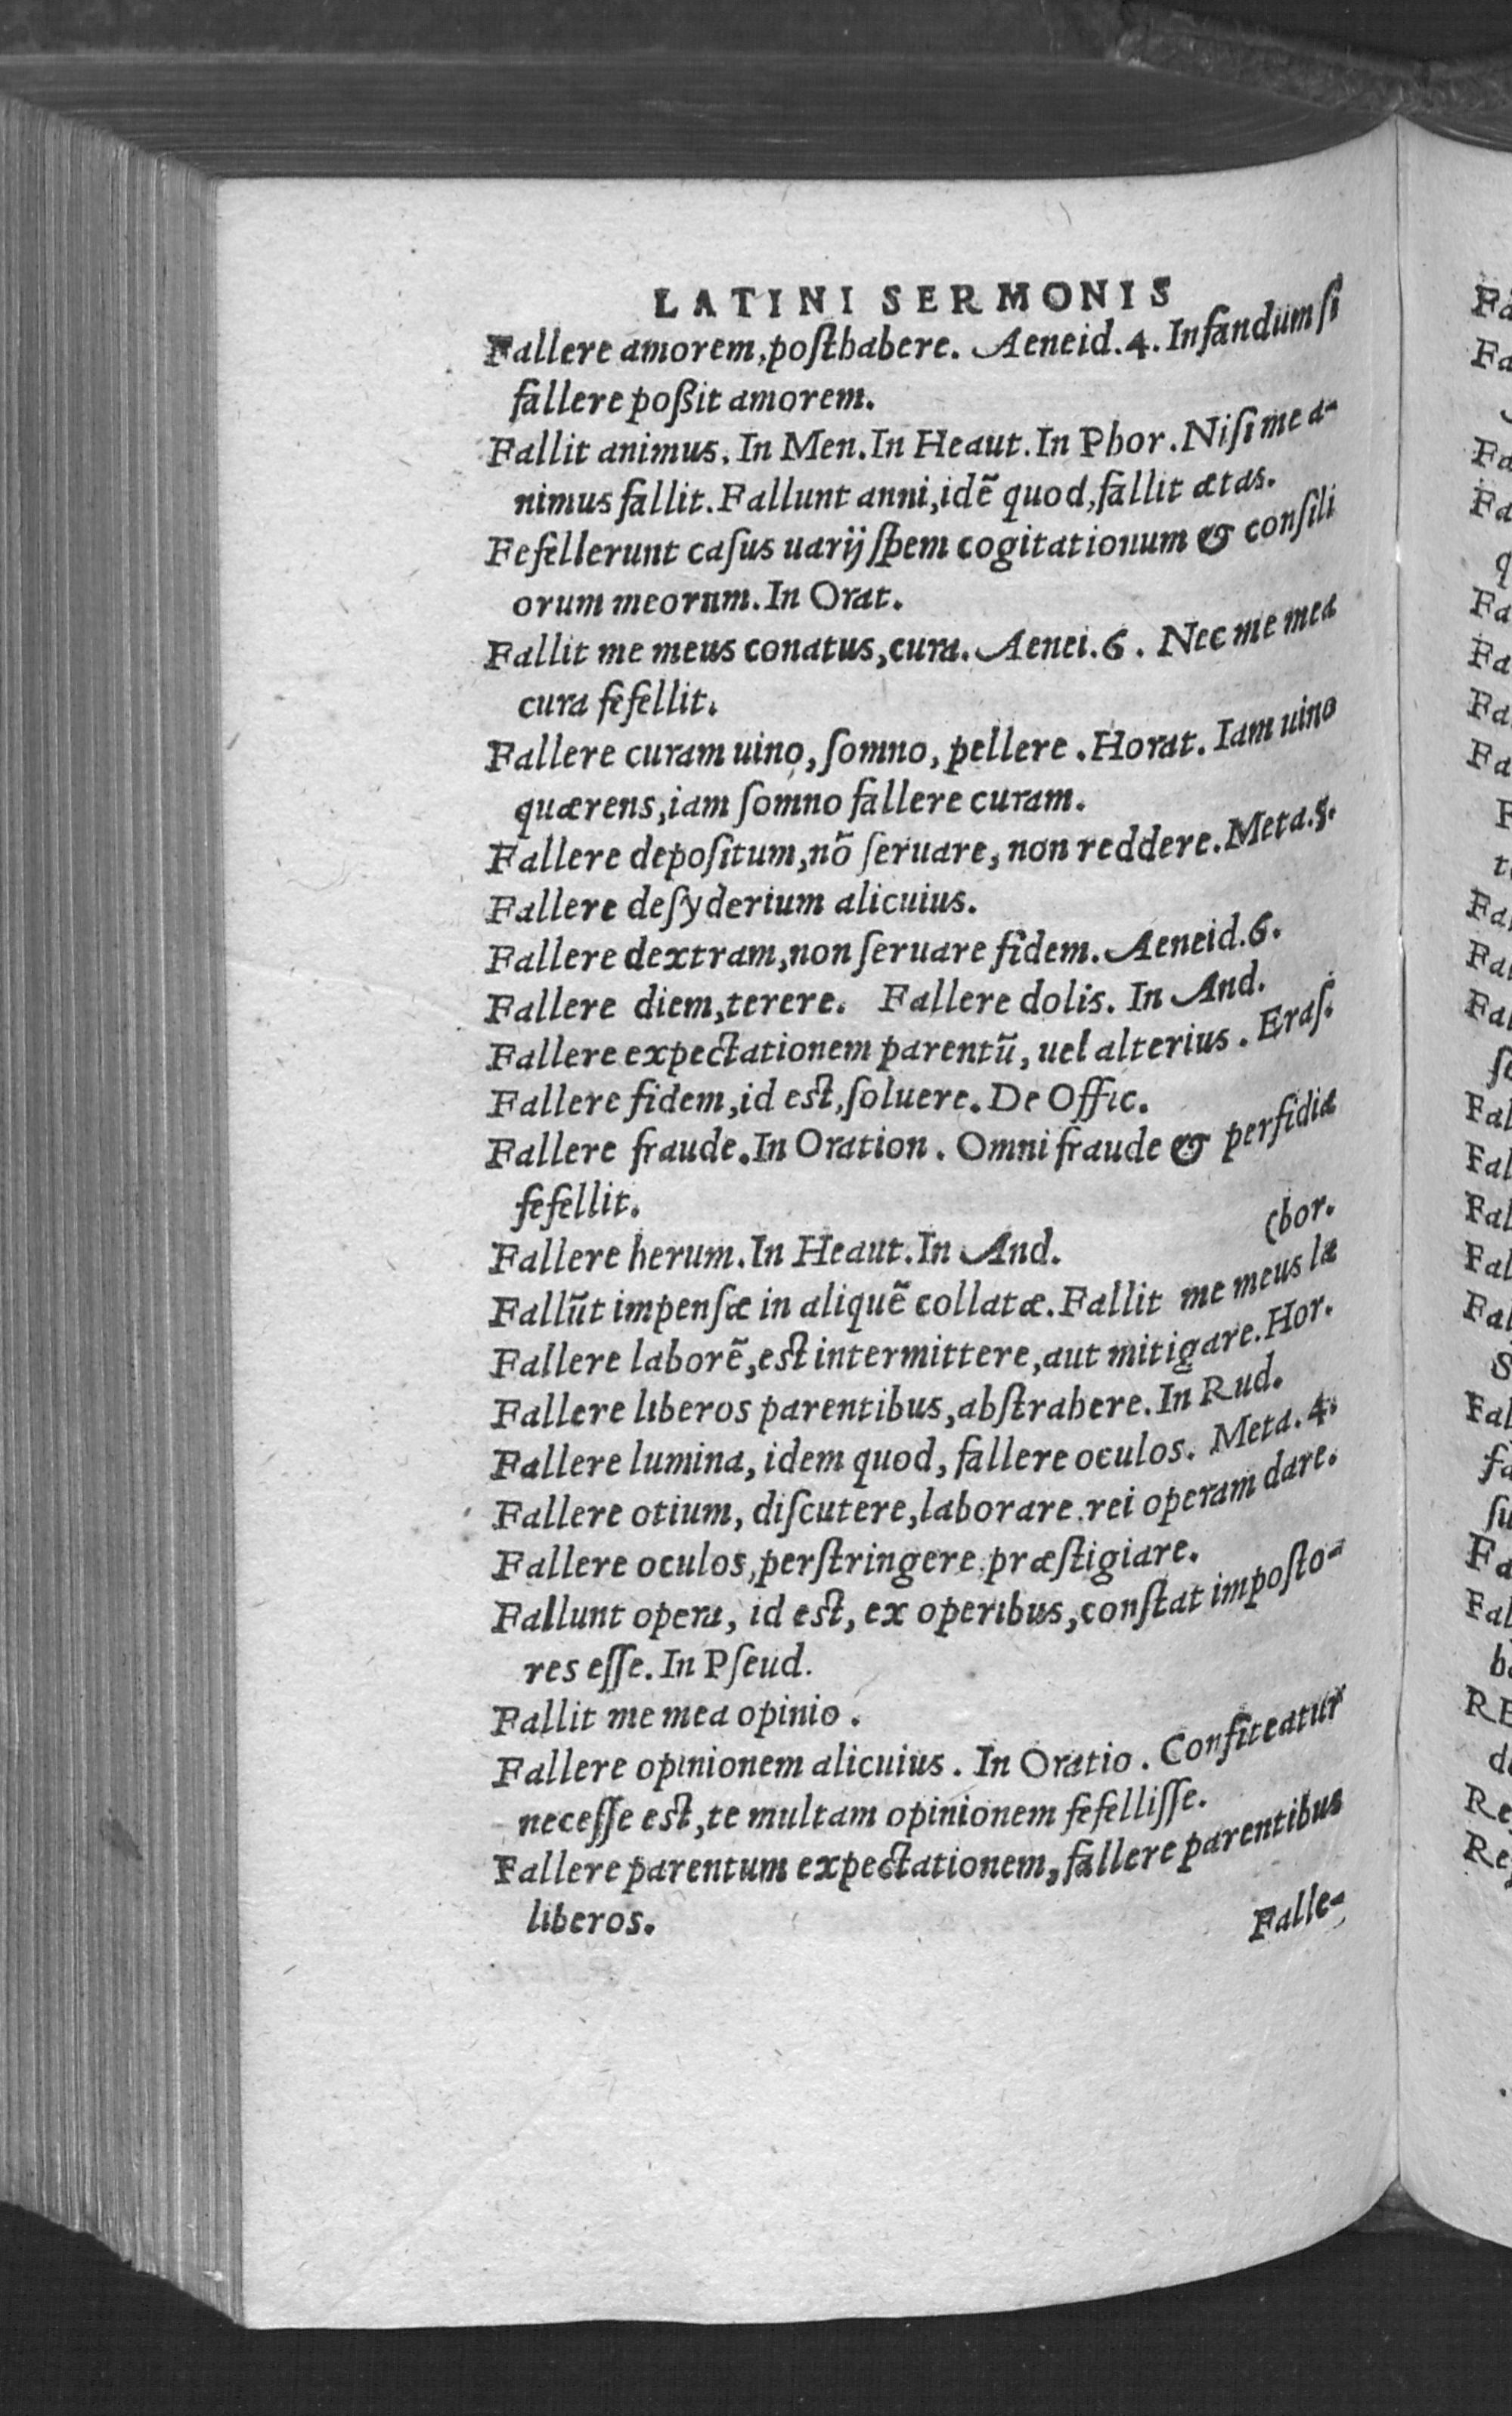 LATINI SERMONIS
Fallere amorem, posthabere. Aeneid. 4. Infandum si
fallere poßit amorem.
Fallit animus. In Men. In Heaut. In Phor. Nisi me a-
nimus fallit. Fallunt anni, idẽ quod, fallit ætas.
Fefellerunt casus uarij spem cogitationum & consili
orum meorum. In Orat.
Fallit me meus conatus, cura. Aenei. 6. Nec me mea
cura fefellit.
Fallere curam uino, somno, pellere. Horat. Iam uino
quærens, iam somno fallere curam.
Fallere depositum, nõ seruare, non reddere. Meta. 5.
Fallere desyderium alicuius.
Fallere dextram, non seruare fidem. Aeneid. 6.
Fallere diem, terere. Fallere dolis. In And.
Fallere expectationem parentũ, uel alterius. Eras.
Fallere fidem, id est, soluere. De Offic.
Fallere fraude. In Oration. Omni fraude & perfidia
fefellit.
Fallere herum. In Heaut. In And. (bor.
Fallũt impensæ in aliquẽ collatæ. Fallit me meus la
Fallere laborẽ, est intermittere, aut mitigare. Hor.
Fallere liberos parentibus, abstrahere. In Rud.
Fallere lumina, idem quod, fallere oculos. Meta. 4.
Fallere otium, discutere, laborare. rei operam dare.
Fallere oculos, perstringere, præstigiare.
Fallunt opera, id est, ex operibus, constat imposto-
res esse. In Pseud.
Fallit me mea opinio.
Fallere opinionem alicuius. In Oratio. Confiteatur
necesse est, te multam opinionem fefellisse.
Fallere parentum expectationem, fallere parentibus
liberos.
Falle-